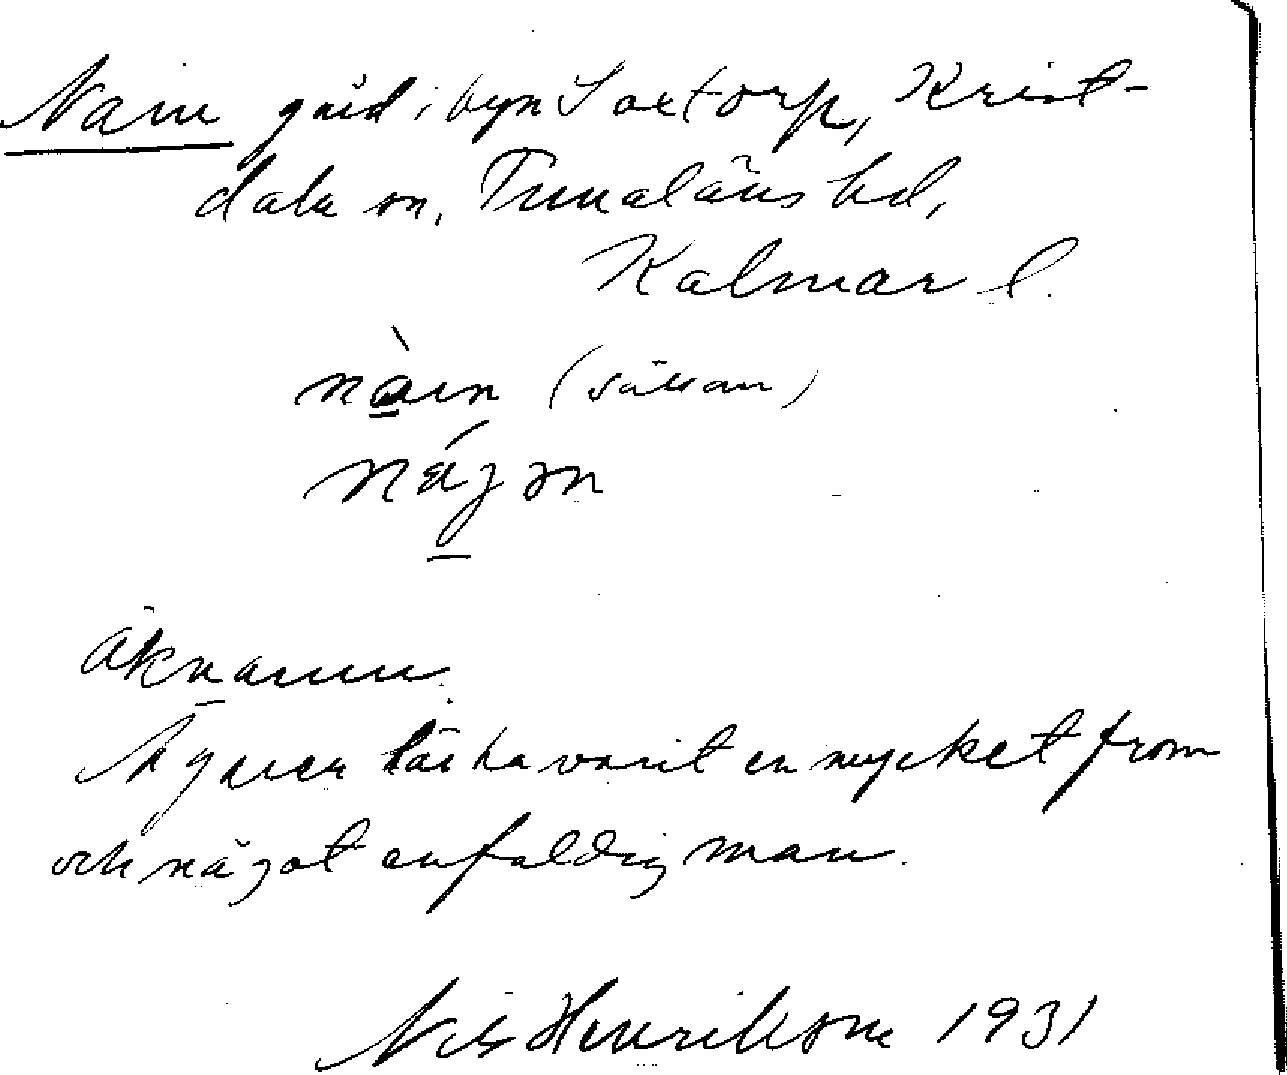 Nain gård i byn Saxtorp, Krist-
dala sn, Tunaläns hd,
Kalmar l.
nàin (sällan)
nájən
Öknamn.
Ägaren lär ha varit en mycket from
och något enfaldig man.
Nils Henrikson 1931